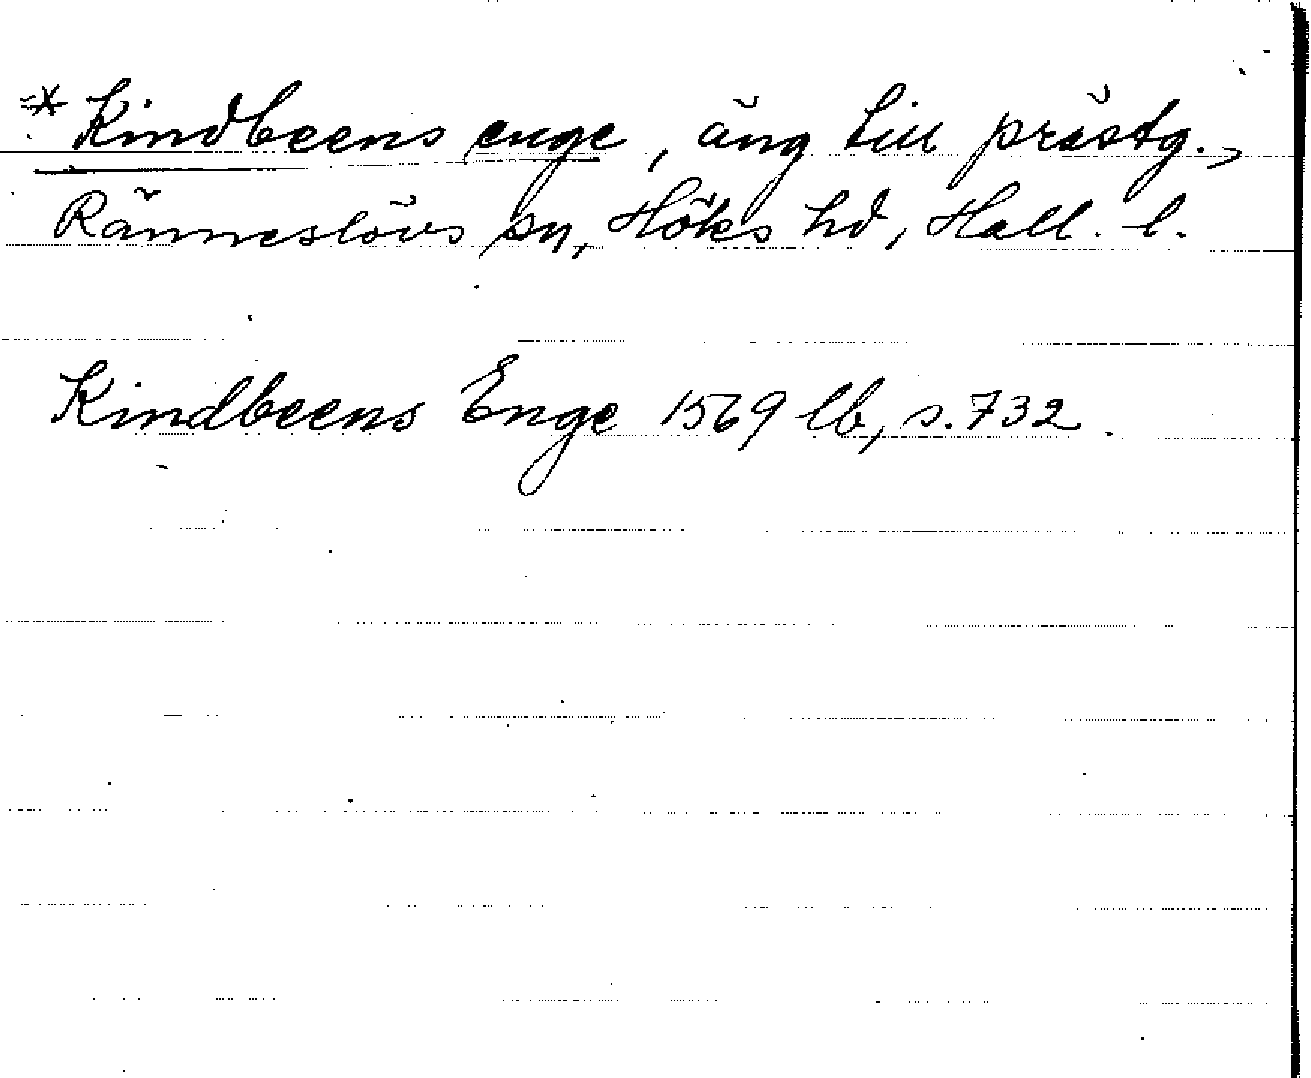 * Kindbeens enge, äng till prästg.,
Ränneslövs sn, Höks hd, Hall. l.
Kindbeens Enge 1569 lb, s. 732